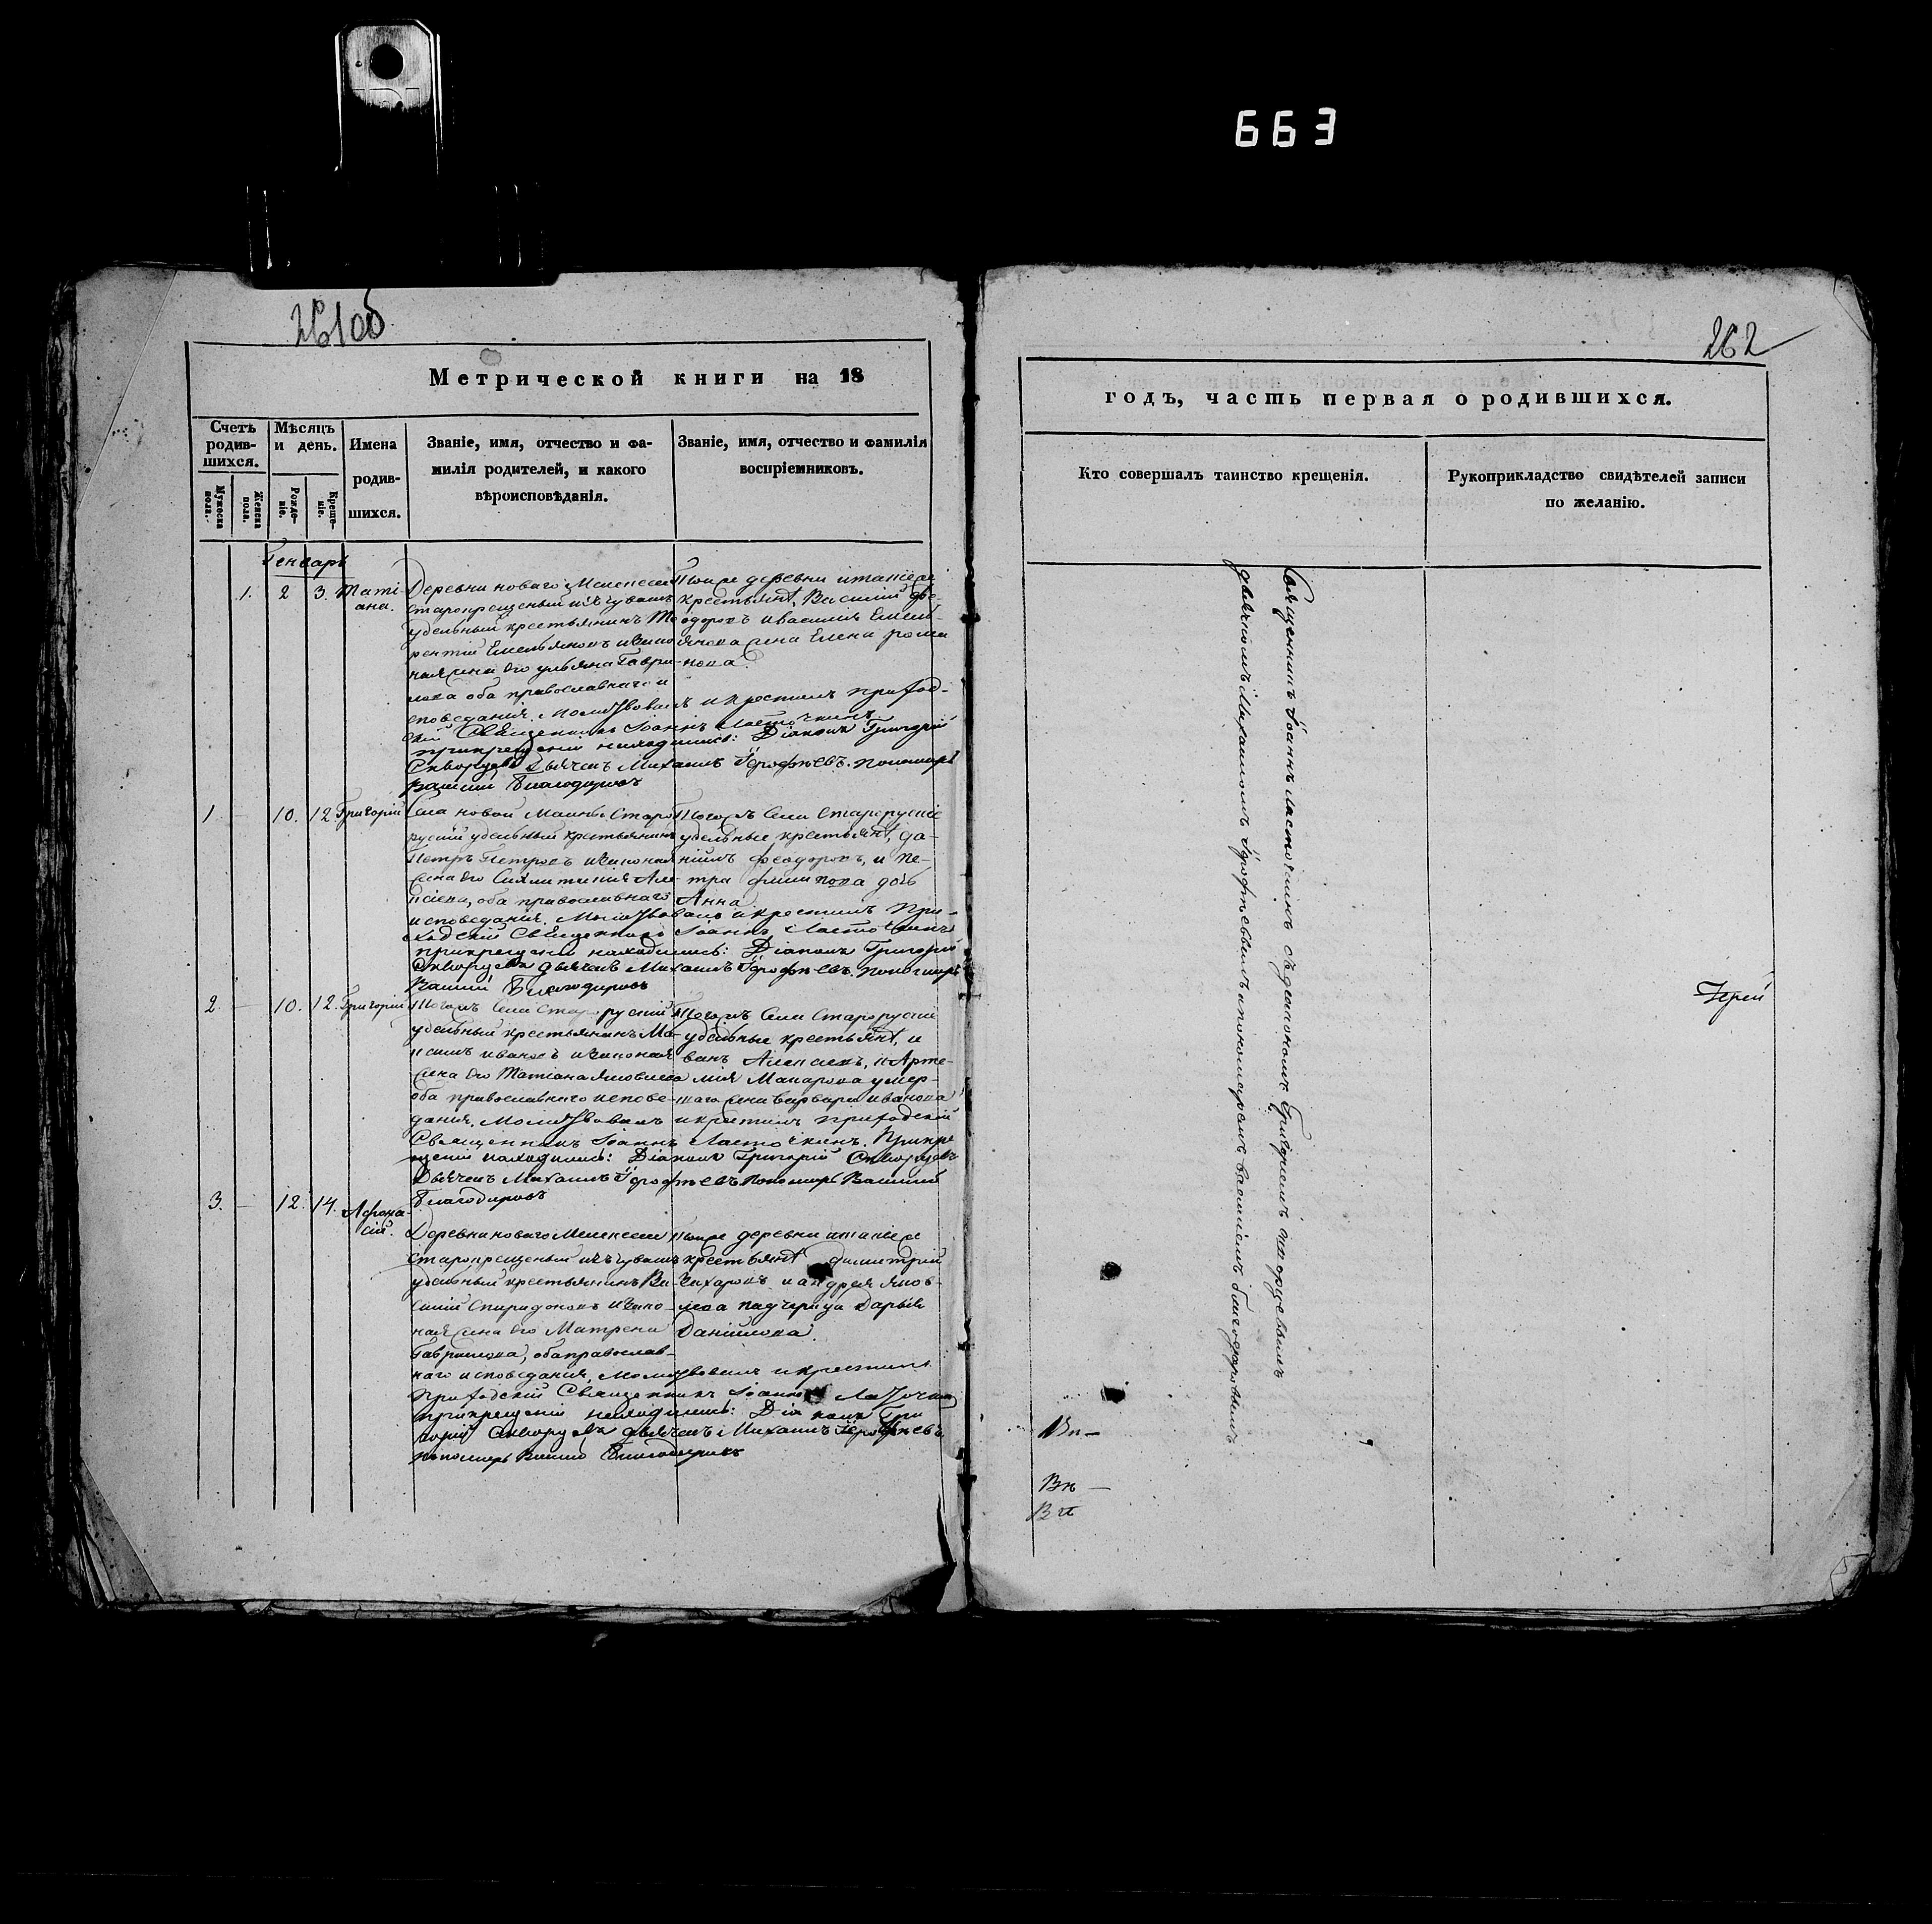 663
261об
Метрической книги на 18
Счетъ родив-шихся.
Мѣсяцъ и день.
Имена родив-шихся.
Званіе, имя, отчество и фа-
милія родителей, и какого
вѣроисповѣданія.
Званіе, имя, отчество и фамилія
воспріемниковъ.
Мужеска пола.
Женска пола.
Рожде-ніе.
Креще-ніе.
Генварь
1. 2 3. Тати-
ана.
Деревни новаго
старокрещеный изъ чувашъ
удельный крестьянинъ Те-
рентій Емельяновъ и закон-
ная жена его ульяна Гаври-
лова оба православнаго и
споведания. Молитвовалъ и крестилъ приход-
ский Священникъ Іоаннъ Ласточкинъ
при крещении находились: Діаконъ Григорій
Скворцовъ Дьячекъ Михаилъ Ерофѣевъ. пономарь
Василий Благодаровъ
Тойже деревни
крестьяне, Василий Фе-
одоровъ и василия Емель-
янова жена Елена рома
нова.
1 — 10. 12. Григорій
Села новой Маины Старо
русский удельный крестьянинъ
Петръ Петровъ и законная
жена его Але-
ксиева, оба православнаго
исповедания. Молитвовалъ и крестилъ При-
ходский Священникъ Іоаннъ Ласточкинъ
при крещении находились: Діаконъ Григорій
Скворцовъ дьячекъ Михаилъ Ерофѣевъ. пономарь
Василий Благодаровъ
Тогожъ Села Старорусские
удельные крестьяне, да-
нiилъ феодоровъ, и пе-
тра филипова дочь
Анна
2 — 10. 12. Григорій
Тогожъ Села Старорусский
удельный крестьянинъ Ма-
ксимъ ивановъ и законная
жена его Татиана яковлева
оба православнаго испове-
дания, Молитвовалъ и крестилъ приходский
Священникъ Іоаннъ Ласточкинъ. При кре
щении находились: Діаконъ Григорій Скворцовъ
Дьячекъ Михаилъ Ерофѣевъ Пономарь Василий
Благодаровъ
Тогожъ Села Старорусские
удельные крестьяне, и
ванъ Алексиевъ, и Арте-
мия Макарова умер-
шаго жена варвара иванова
3. — 12. 14. Афана-
сій.
Деревни новаго
старокрещеный изъ чувашъ
удельный крестьянинъ Ва-
силий Спиридоновъ и зако-
ная жена его Матрена
Гаврилова, оба православ-
наго исповедания, Молитвовалъ и крестилъ
Приходский Священникъ Іоаннъ Ласточкинъ
при крещении находились: Діаконъ Гри
горий Скворцовъ дьячекъ Михаилъ Ерофѣевъ
пономарь Василий Благодаровъ
Тойже деревни
крестьяне димитрий
Захаровъ и андрея яков-
лева падчерица Дарья
Данилова.
262
годъ, часть первая о родившихся.
Кто совершалъ таинство крещенія.
Рукоприкладство свидѣтелей записи
по желанію.
Священникъ Іоаннъ Ласточкинъ съ диакономъ Григориемъ Скворцовымъ
дьячкомъ Михаиломъ Ерофѣевымъ и пономаремъ василиемъ благодаровымъ
Іерей